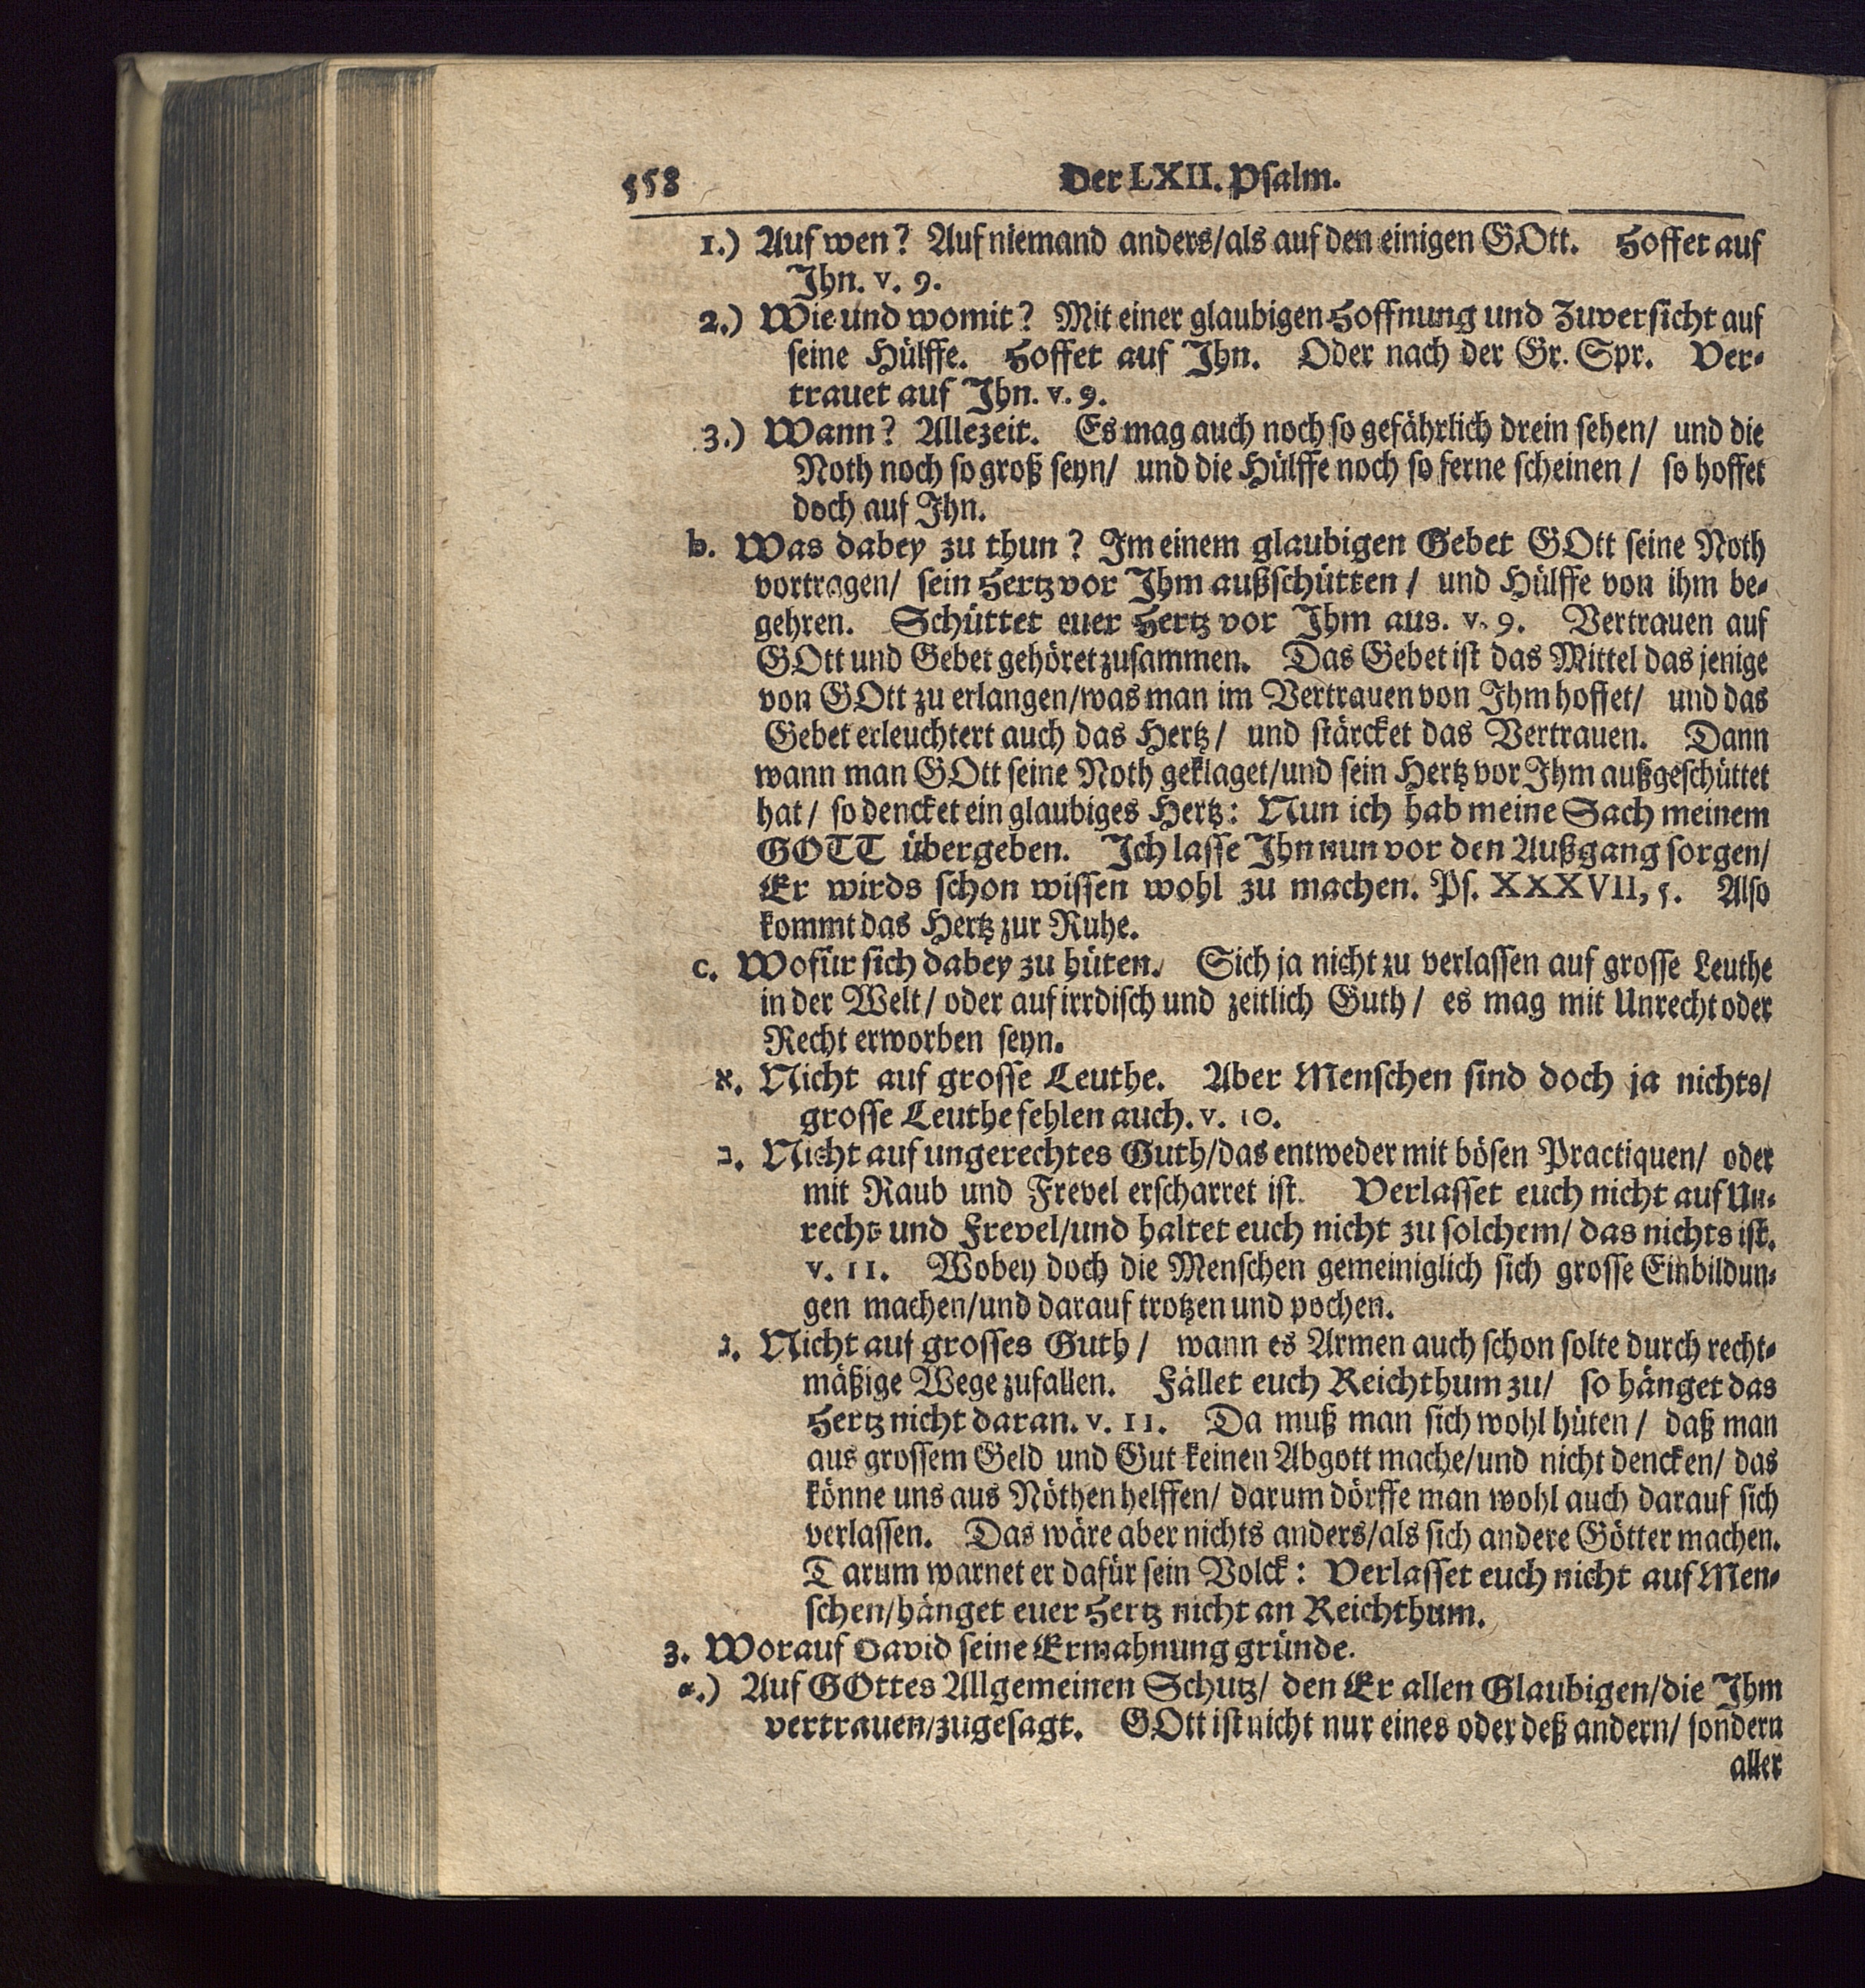 558 Der LXII. Psalm.
1.) Auf wen? Auf niemand anders/als auf den einigen GOtt. Hoffet auf
Jhn. v. 9.
2.) Wie und womit? Mit einer glaubigen Hoffnung und Zuversicht auf
seine Hülffe. Hoffet auf Jhn. Oder nach der Gr. Spr. Ver-
trauet auf Jhn. v. 9.
3.) Wann? Allezeit. Es mag auch noch so gefährlich drein sehen/ und die
Noth noch so groß seyn/ und die Hülffe noch so ferne scheinen/ so hoffet
doch auf Jhn.
b. Was dabey zu thun? Jm einem glaubigen Gebet GOtt seine Noth
vortragen/ sein Hertz vor Jhm außschütten/ und Hülffe von ihm be-
gehren. Schüttet euer Hertz vor Jhm aus. v. 9. Vertrauen auf
GOtt und Gebet gehöret zusammen. Das Gebet ist das Mittel das jenige
von GOtt zu erlangen/was man im Vertrauen von Jhm hoffet/ und das
Gebet erleuchtert auch das Hertz/ und stärcket das Vertrauen. Dann
wann man GOtt seine Noth geklaget/und sein Hertz vor Jhm außgeschüttet
hat/ so dencket ein glaubiges Hertz: Nun ich hab meine Sach meinem
GOTT übergeben. Jch lasse Jhn nun vor den Außgang sorgen/
Er wirds schon wissen wohl zu machen. Ps. XXXVII, 5. Also
kommt das Hertz zur Ruhe.
c. Wofür sich dabey zu hüten. Sich ja nicht zu verlassen auf grosse Leuthe
in der Welt/ oder auf irrdisch und zeitlich Guth/ es mag mit Unrecht oder
Recht erworben seyn.
א. Nicht auf grosse Leuthe. Aber Menschen sind doch ja nichts/
grosse Leuthe fehlen auch. v. 10.
ב. Nicht auf ungerechtes Guth/das entweder mit bösen Practiquen/ oder
mit Raub und Frevel erscharret ist. Verlasset euch nicht auf Un-
recht und Frevel/und haltet euch nicht zu solchem/ das nichts ist.
v. 11. Wobey doch die Menschen gemeiniglich sich grosse Einbildun-
gen machen/und darauf trotzen und pochen.
ג. Nicht auf grosses Guth/ wann es Armen auch schon solte durch recht-
mäßige Wege zufallen. Fället euch Reichthum zu/ so hänget das
Hertz nicht daran. v. 11. Da muß man sich wohl hüten/ daß man
aus grossem Geld und Gut keinen Abgott mache/und nicht dencken/ das
könne uns aus Nöthen helffen/ darum dörffe man wohl auch darauf sich
verlassen. Das wäre aber nichts anders/als sich andere Götter machen.
Darum warnet er dafür sein Volck: Verlasset euch nicht auf Men-
schen/hänget euer Hertz nicht an Reichthum.
3. Worauf David seine Ermahnung gründe.
a.) Auf GOttes Allgemeinen Schutz/ den Er allen Glaubigen/die Jhm
vertrauen/zugesagt. GOtt ist nicht nur eines oder deß andern/ sondern
aller